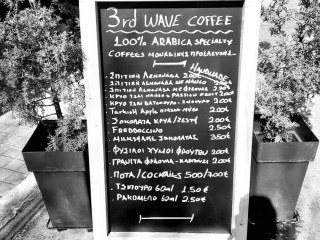 3rd WAVE COFFEE
100% ARABICA SPECIALTY
COFFEES ΜΟΝΑΔΙΚΗΣ ΠΡΟΕΛΕΥΣΗΣ
HANDMADE
ΣΠΙΤΙΚΗ ΛΕΜΟΝΑΔΑ 2.00€
ΣΠΙΤΙΚΗ ΛΕΜΟΝΑΔΑ ΜΕ
ΣΠΙΤΙΚΗ ΛΕΜΟΝΑΔΑ ΜΕ ΦΡΑΟΥΛΑ
ΚΡΥΟ ΤΣΑΙ ΜΑΝΓΚΟ & PASSION FRUIT 2.00€
ΚΡΥΟ ΤΣΑΙ ΒΑΤΟΜΟΥΡΟ 2.00€
Turkish Apple 2.00€
ΣΟΚΟΛΑΤΑ ΚΡΥΑ/ΖΕΣΤΗ 2.00€
FREDDOCCINO 2.50€
MILKSHAKE ΣΟΚΟΛΑΤΑΣ 3.50€
ΦΥΣΙΚΟΙ ΧΥΜΟΙ ΦΡΟΥΤΩΝ 2.00€
ΓΡΑΝΙΤΑ ΦΡΑΟΥΛΑ-ΚΑΡΠΟΥΖΙ 2.00€
ΠΟΤΑ/COCKTAILS 5.00/7.00€
·ΤΣΙΠΟΥΡΟ 60ml 1.50€
·ΡΑΚΟΜΕΛΟ 60ml 2.50€